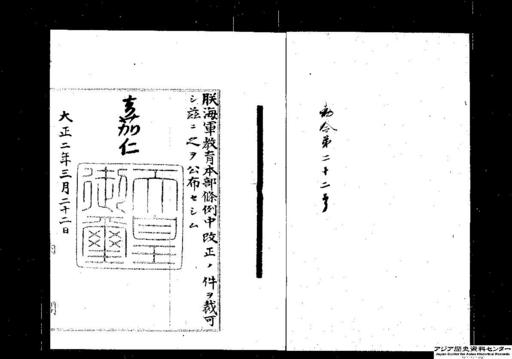 勅令第二十二号
朕海軍教育本部條例中改正ノ件ヲ裁可
シ茲ニ之ヲ公布セシム
嘉仁
天皇
御璽
大正二年三月二十二日
アジア歴史資料センター
Japan Center for Asian Historical Records